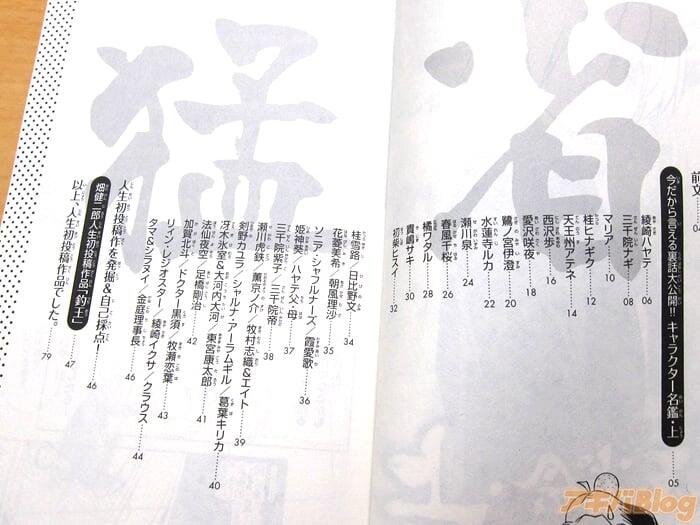 省
猛
前文……04
今だから言える裏話大公開!! キャラクター名鑑・上……05
綾崎ハヤテ……06
三千院ナギ……08
マリア……10
桂ヒナギク……12
天王州アテネ……14
西沢歩……16
愛沢咲夜……18
鷺ノ宮伊澄……20
水蓮寺ルカ……22
瀬川泉……24
春風千桜……26
橘ワタル……28
貴嶋サキ……30
初柴ヒスイ……32
桂雪路/日比野文……34
花菱美希/朝風理沙……35
ソニア・シャフルナーズ/霞愛歌……36
姫神葵/ハヤテ父・母……37
三千院紫子/三千院帝……38
瀬川虎鉄/薫京ノ介/牧村志織&エイト……39
剣野カユラ/シャルナ・アーラムギル/葛葉キリカ……40
冴木氷室&大河内大河/東宮康太郎……41
法仙夜空/足橋剛治……42
加賀北斗/ドクター黒須/牧瀬恋葉……43
リィン・レジオスター/綾崎イクサ/クラウス……44
タマ&シラヌイ/金庭理事長……46
人生初投稿作を発掘&自己採点!……46
畑健二郎人生初投稿作品「釣王」……47
以上、人生初投稿作品でした。……79
アキバBlog